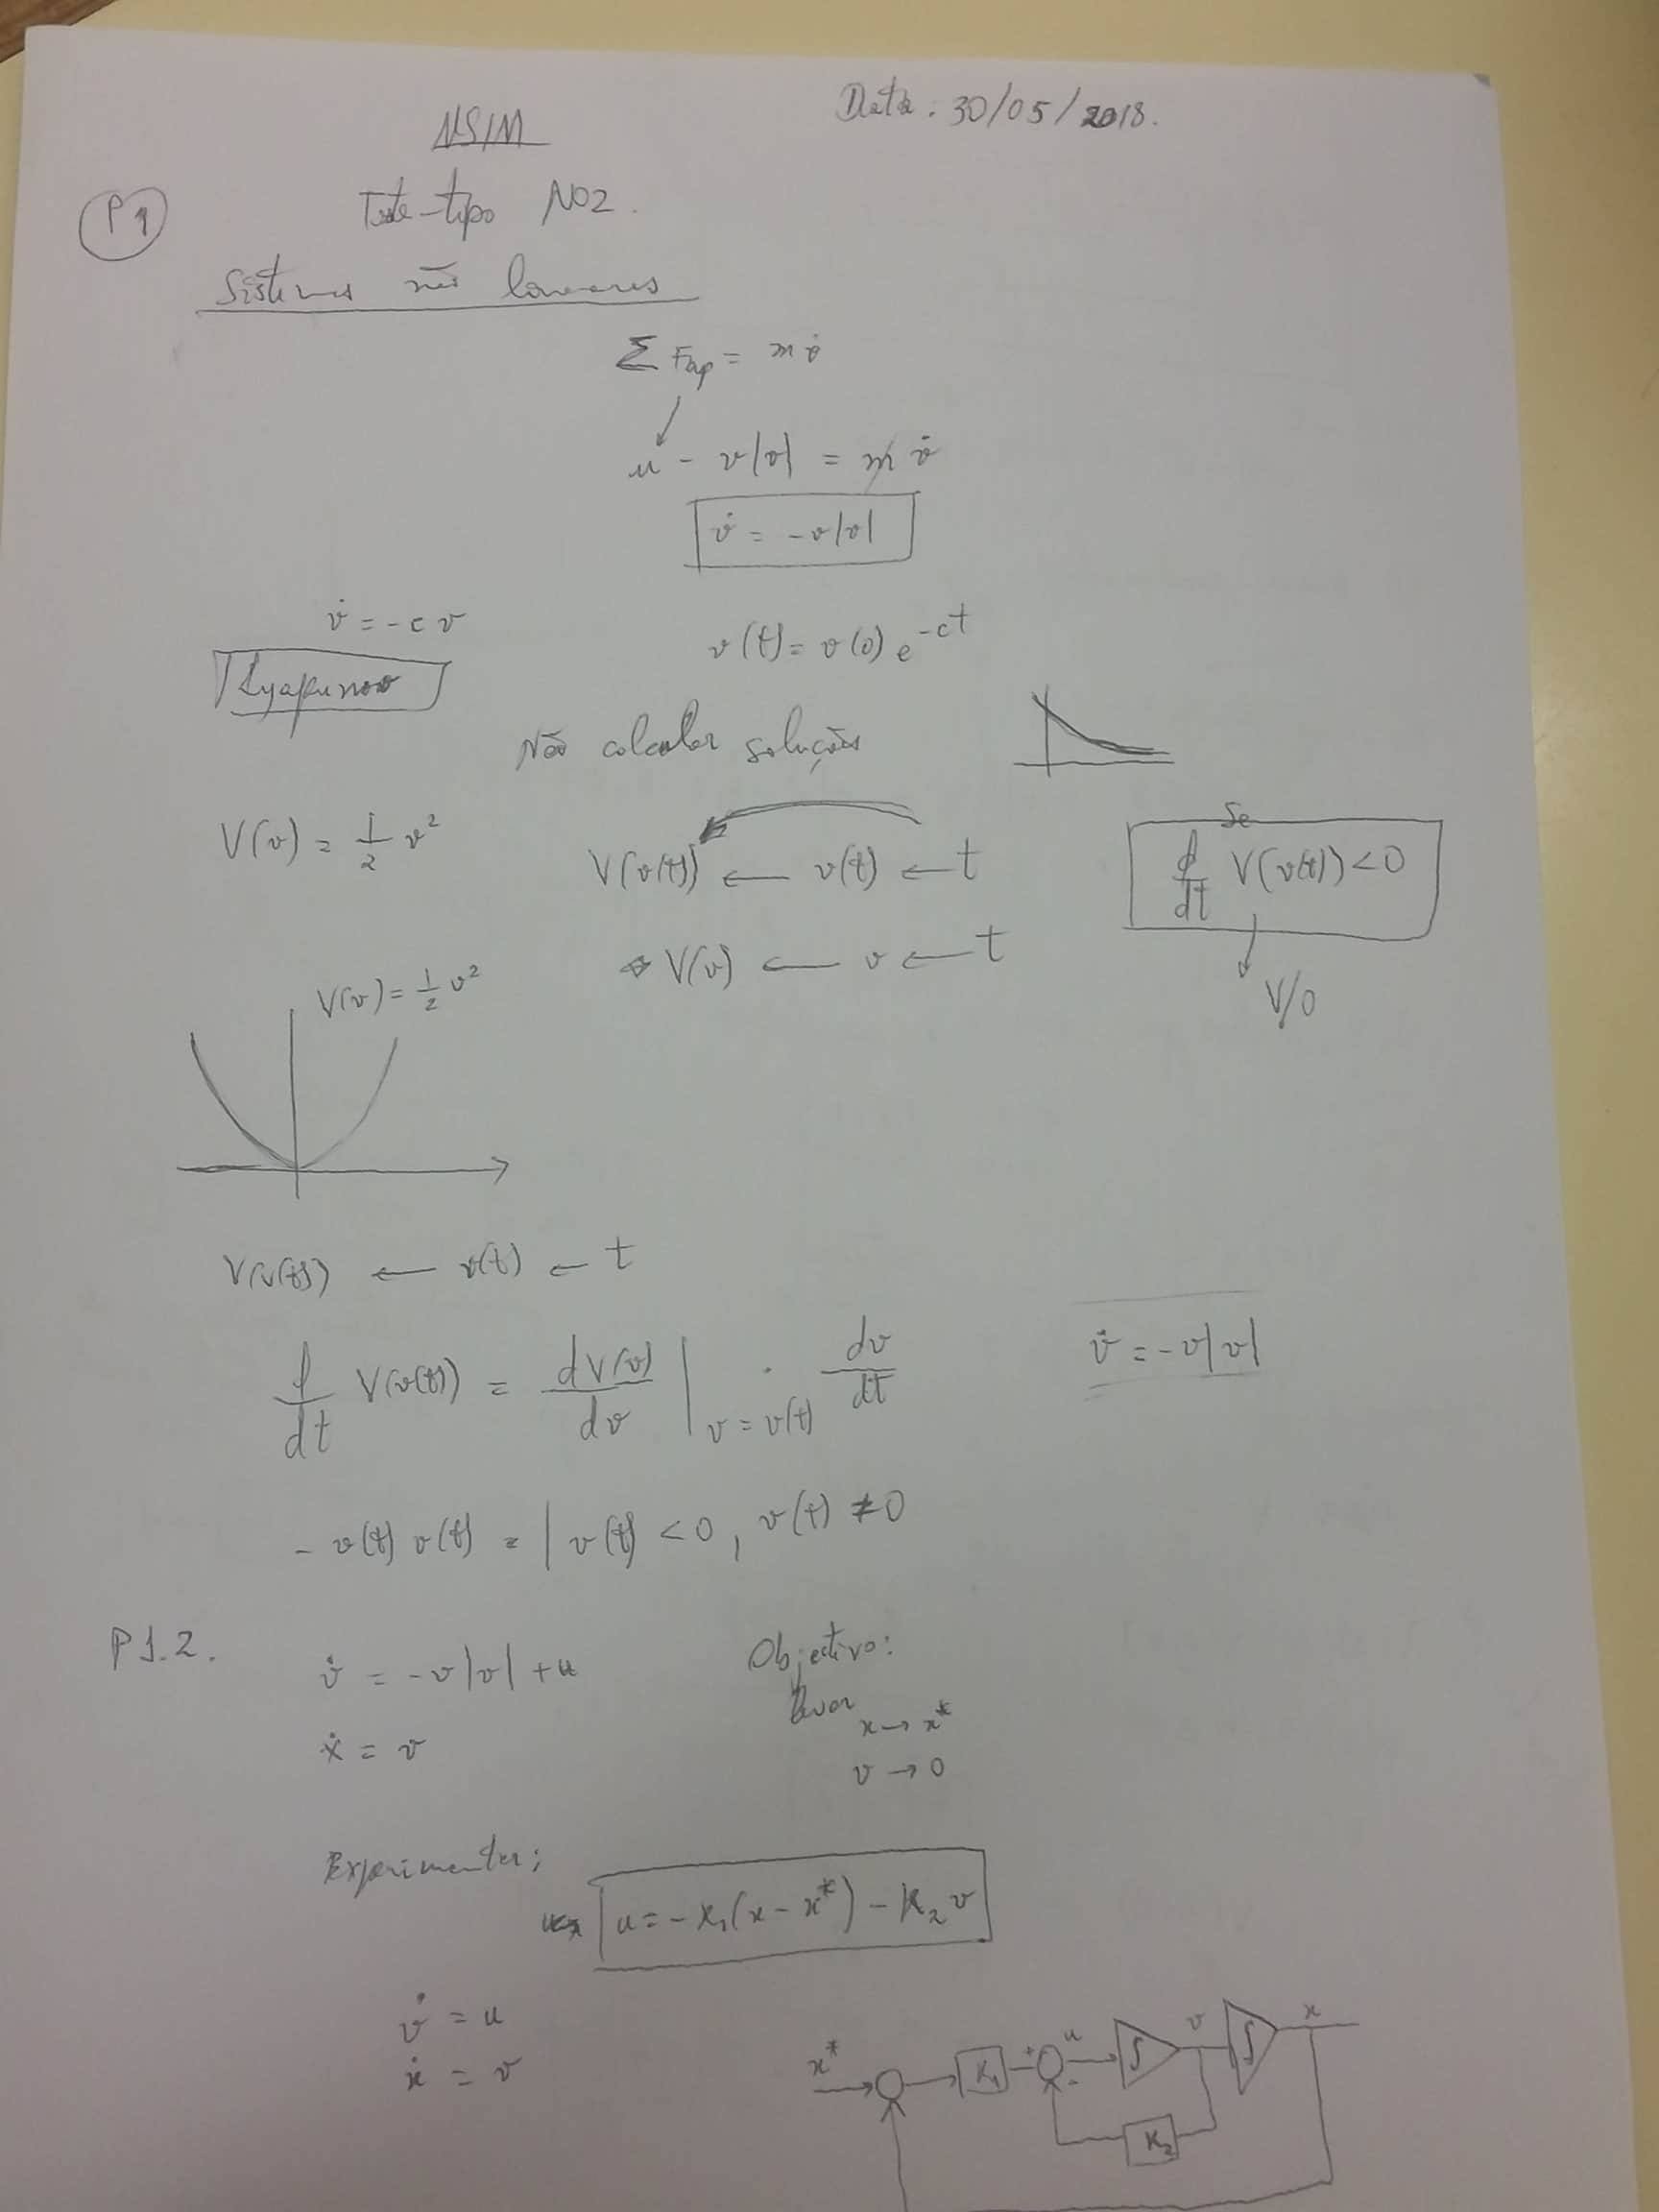 Data: 30/05/2018.
NSIM
P1
Teste-tipo NO2.
Sistemas não lineares
Σ Fap = m v̇
u - v|v| = m v̇
v̇ = -v|v|
v̇ = -c v
v(t) = v(0) e^-ct
Lyapunov
Não calcular soluções
V(v) = 1/2 v²
V(v(t)) ← v(t) ← t
Se
d/dt V(v(t)) < 0
V(v) ← v ← t
V/0
V(v) = 1/2 v²
V(v(t)) ← v(t) ← t
d/dt V(v(t)) = dV(v)/dv |v=v(t) . dv/dt
v̇ = -v|v|
- v(t) v(t) = | v(t) < 0, v(t) ≠ 0
P1.2.
v̇ = -v|v| + u
Objectivo:
levar
x → x*
ẋ = v
v → 0
Experimentar:
u = -K₁(x - x*) - K₂ v
v̇ = u
ẋ = v
x* K₁ + - u ∫ v ∫ x
K₂